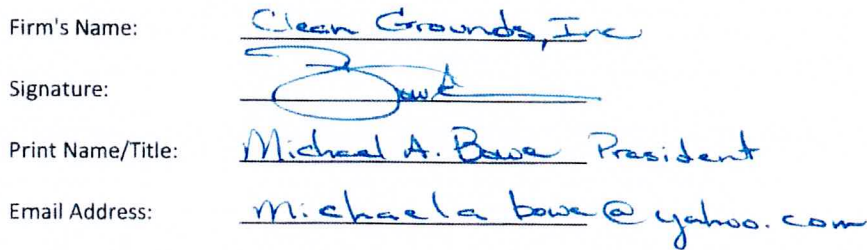 Firm's Name: Clean Grounds, Inc
Signature: Bowe
Print Name/Title: Michael A. Bowe President
Email Address: michaela bowe@yahoo.com